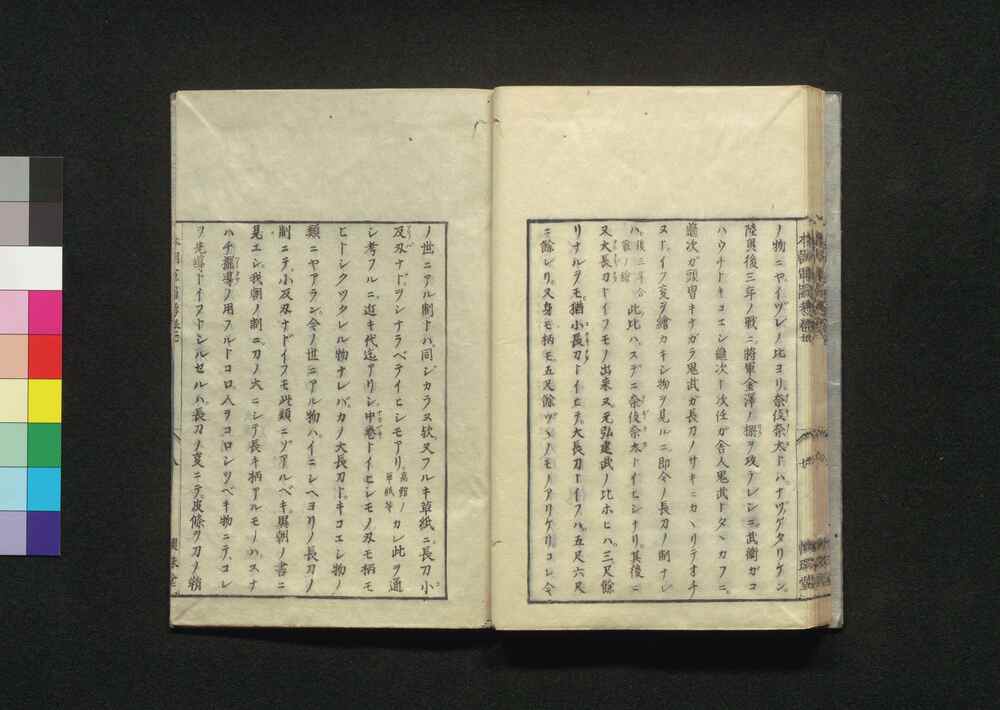 ノ物ニヤイヅレノ比ヨリ奈伎奈太トハナヅケタリケン
陸奥後三年ノ戦ニ將軍金澤ノ柵ヲ攻テレシニ武衡ガコ
ハウチトキコエシ龜次ト次任ガ舎人鬼武トタヽカフニ
龜次ガ頭冑キナガラ鬼武ガ長刀ノサキニカヽリテオチ
ヌトイフ亥ヲ繪カキシ物ヲ見ルニ即今ノ長刀ノ制ナレ
ハ 後三年合戰ノ繪 此比ハスデニ奈伎奈太トイヒシナリ其後ニ
又大長刀トイフモノ出来ヌ元弘建武ノ比ホヒハ三尺餘
リナルヲモ猶小長刀トイヒテ大長刀トイフハ五尺六尺
ニ餘レリ又身モ柄モ五尺餘ヅヽノモノアリケリコレ今
ノ世ニアル制トハ同シカラヌ欤又フルキ草紙ニ長刀小
反刃ナドヲツラナラベテイヒシモアリ 髙舘ノ草紙等 カレ此ヲ通
シ考フルニ近キ代迄アリシ中巻トイヒシモノ刃モ柄モ
ヒトシクツクレル物ナレバカノ大長刀トキコエシ物ノ
類ニヤアラン今ノ世ニアル物ハイニシヘヨリノ長刀ノ
制ニテ小反刃ナドイフモ此類ニゾアルベキ異朝ノ書ニ
見エシ我朝ノ制ニ刀ノ大ニシテ長キ柄アルモノハスナ
ハチ擺導ノ用フルトコロ人ヲコロシツベキ物ニテコレ
ヲ先導トイフトシルセルハ長刀ノ亥ニテ皮條ヲ刀ノ鞘